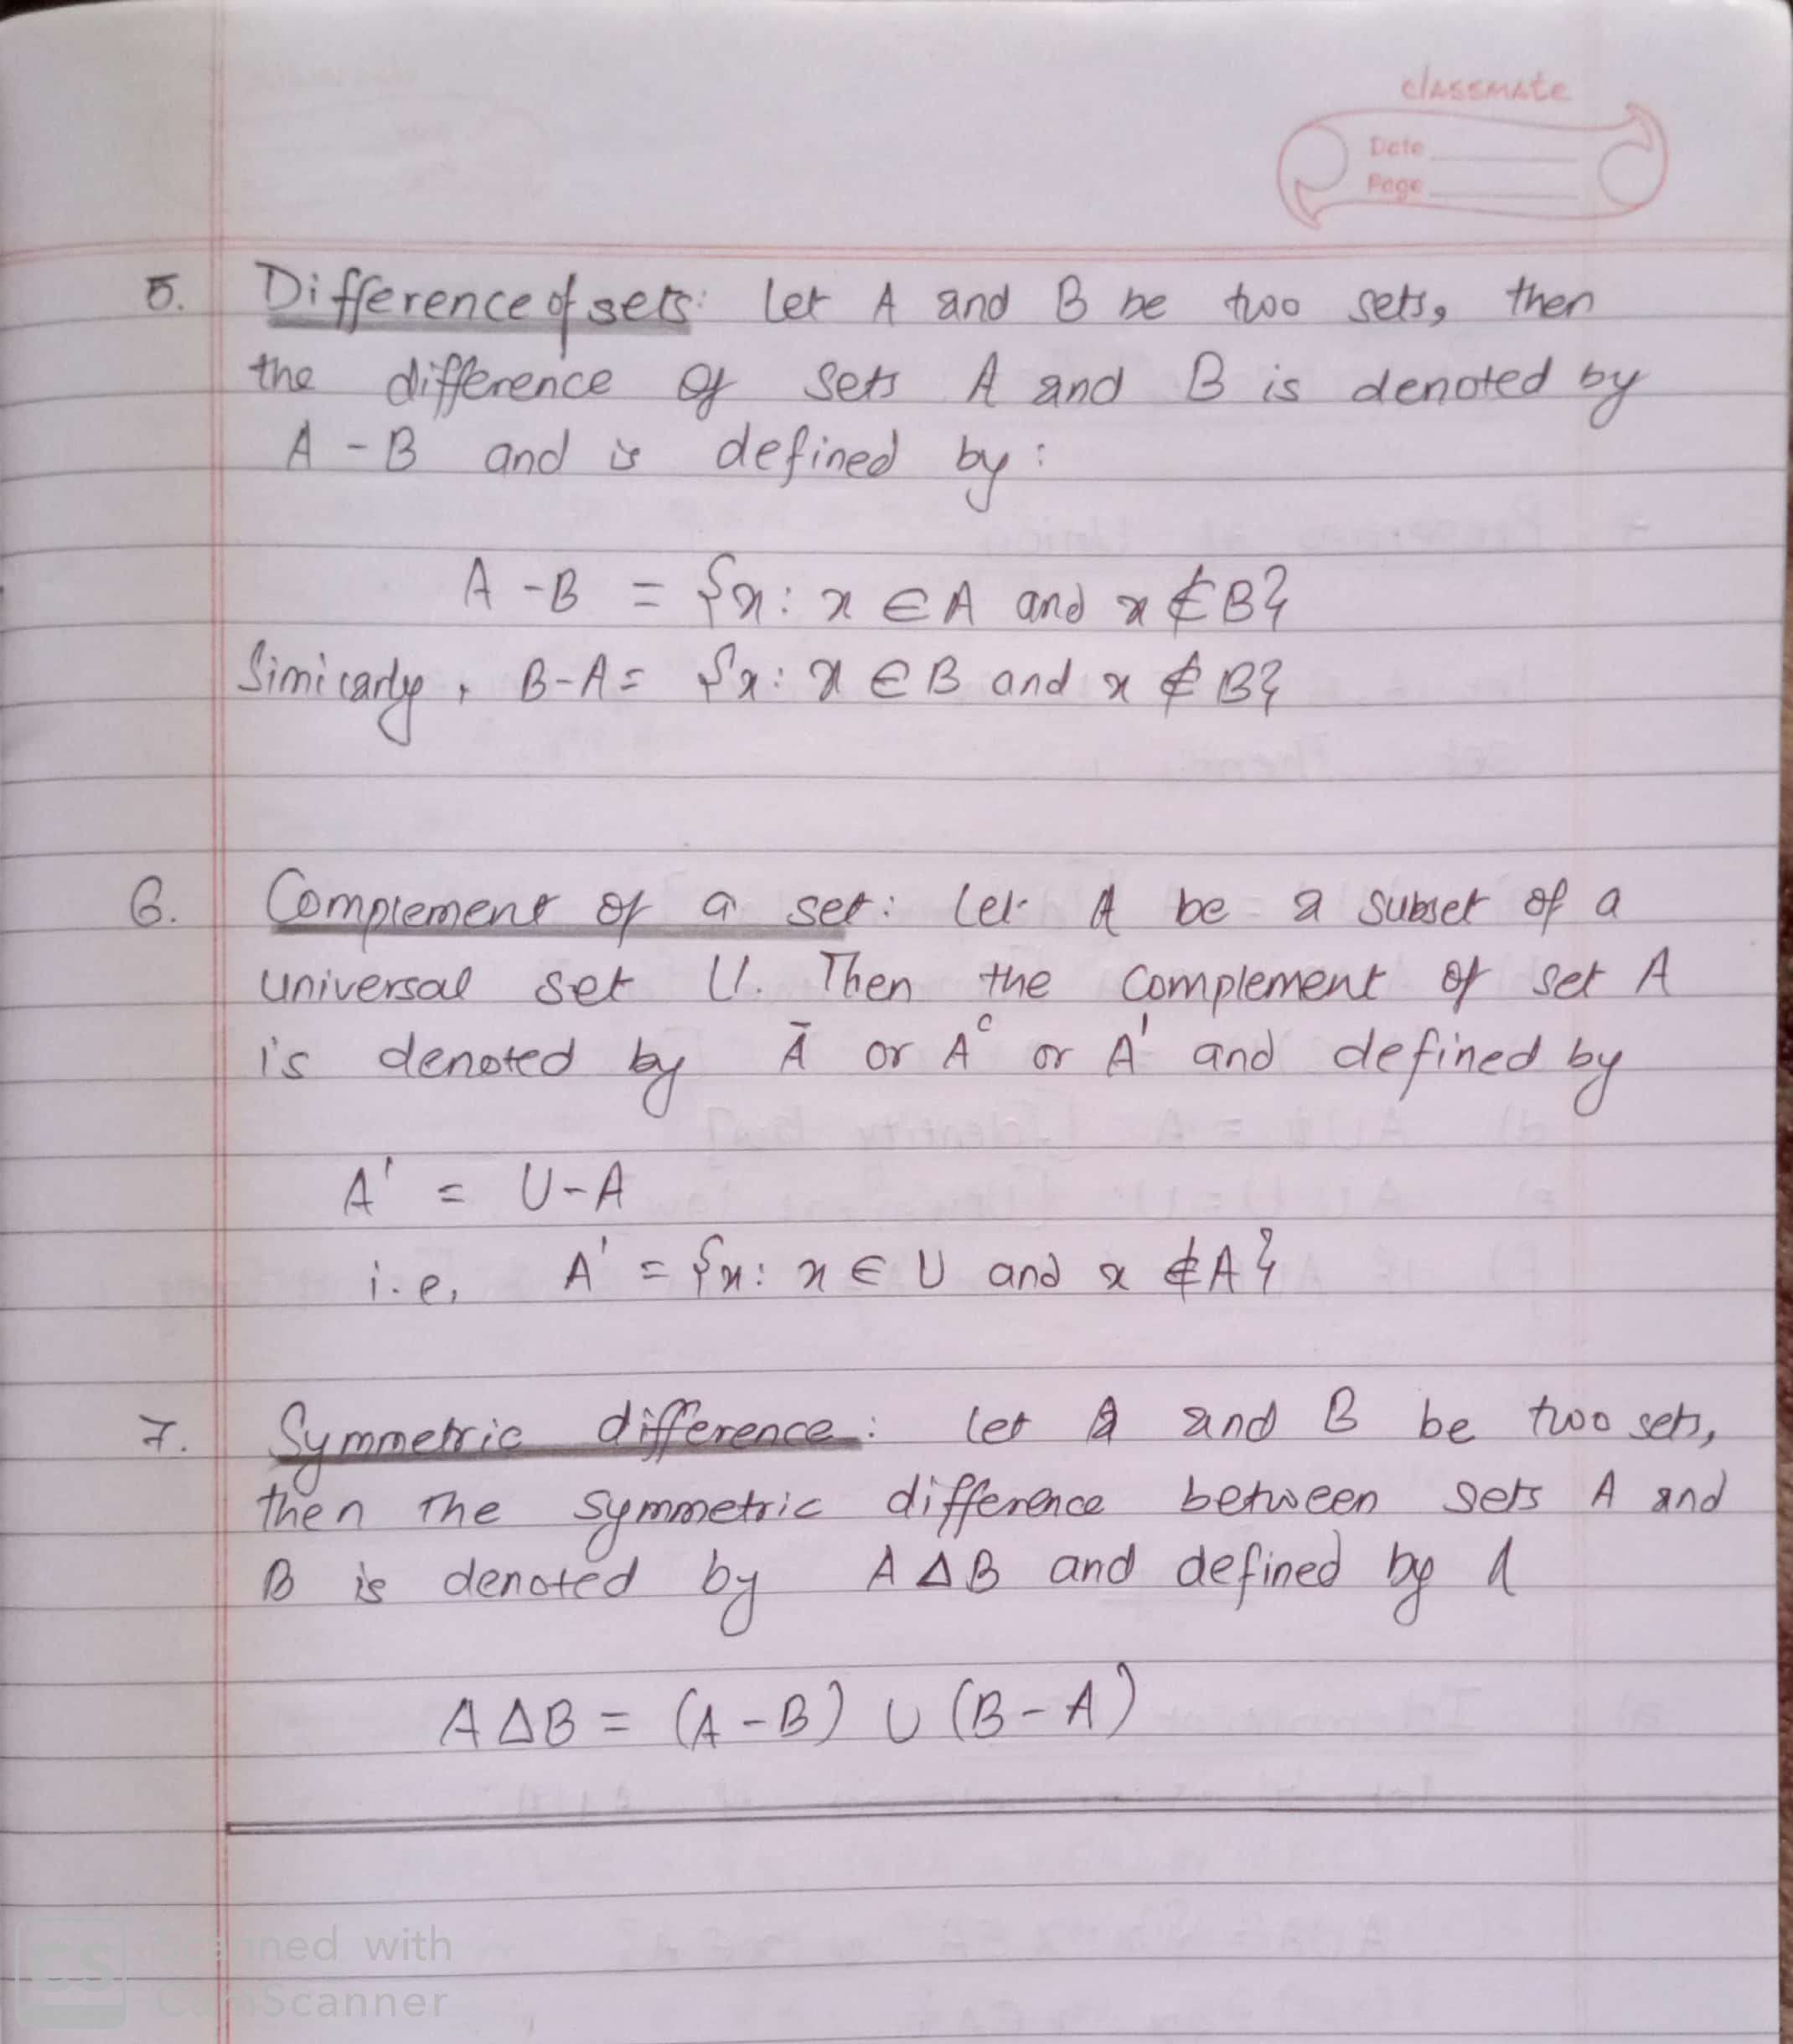 classmate
Date
Page
5. Difference of sets: Let A and B be two sets, then
the difference of sets A and B is denoted by
A - B and is defined by:
A - B = {x: x ∈ A and x ∉ B}
Similarly, B-A = {x: x ∈ B and x ∉ B}
6. Complement of a set: Let A be a subset of a
universal set U. Then the complement of set A
is denoted by Ā or Aᶜ or A' and defined by
A' = U-A
i.e, A' = {x: x ∈ U and x ∉ A}
7. Symmetric difference: Let A and B be two sets,
then the symmetric difference between sets A and
B is denoted by A Δ B and defined by
A Δ B = (A - B) ∪ (B - A)
CS Scanned with
CamScanner